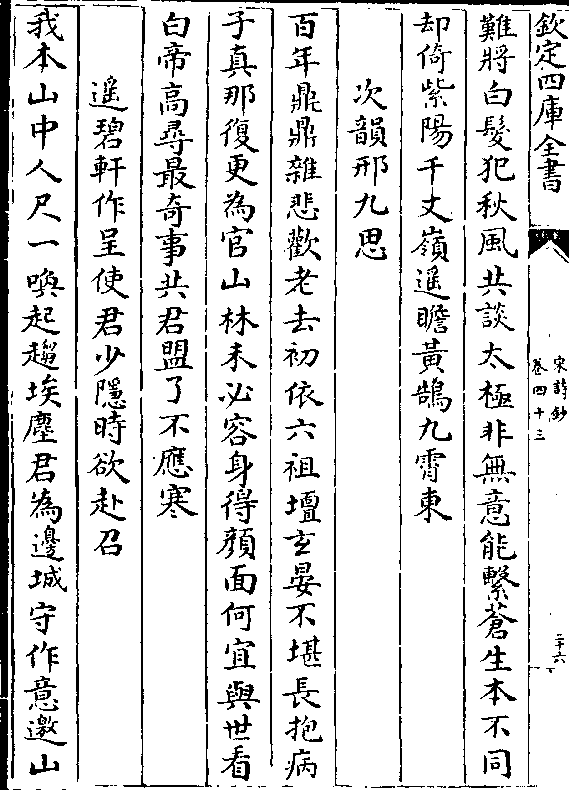 欽定四庫全書
宋詩鈔
卷四十三
二十六
難將白髮犯秋風共談太極非無意能繫蒼生本不同
却倚紫陽千丈嶺遥瞻黃鵠九霄東
次韻邢九思
百年鼎鼎雜悲歡老去初依六祖壇玄晏不堪長抱病
子真那復更為官山林未必容身得顔面何宜與世看
白帝高尋最奇事共君盟了不應寒
遥碧軒作呈使君少隱時欲赴召
我本山中人尺一喚起趨埃塵君為邊城守作意邀山